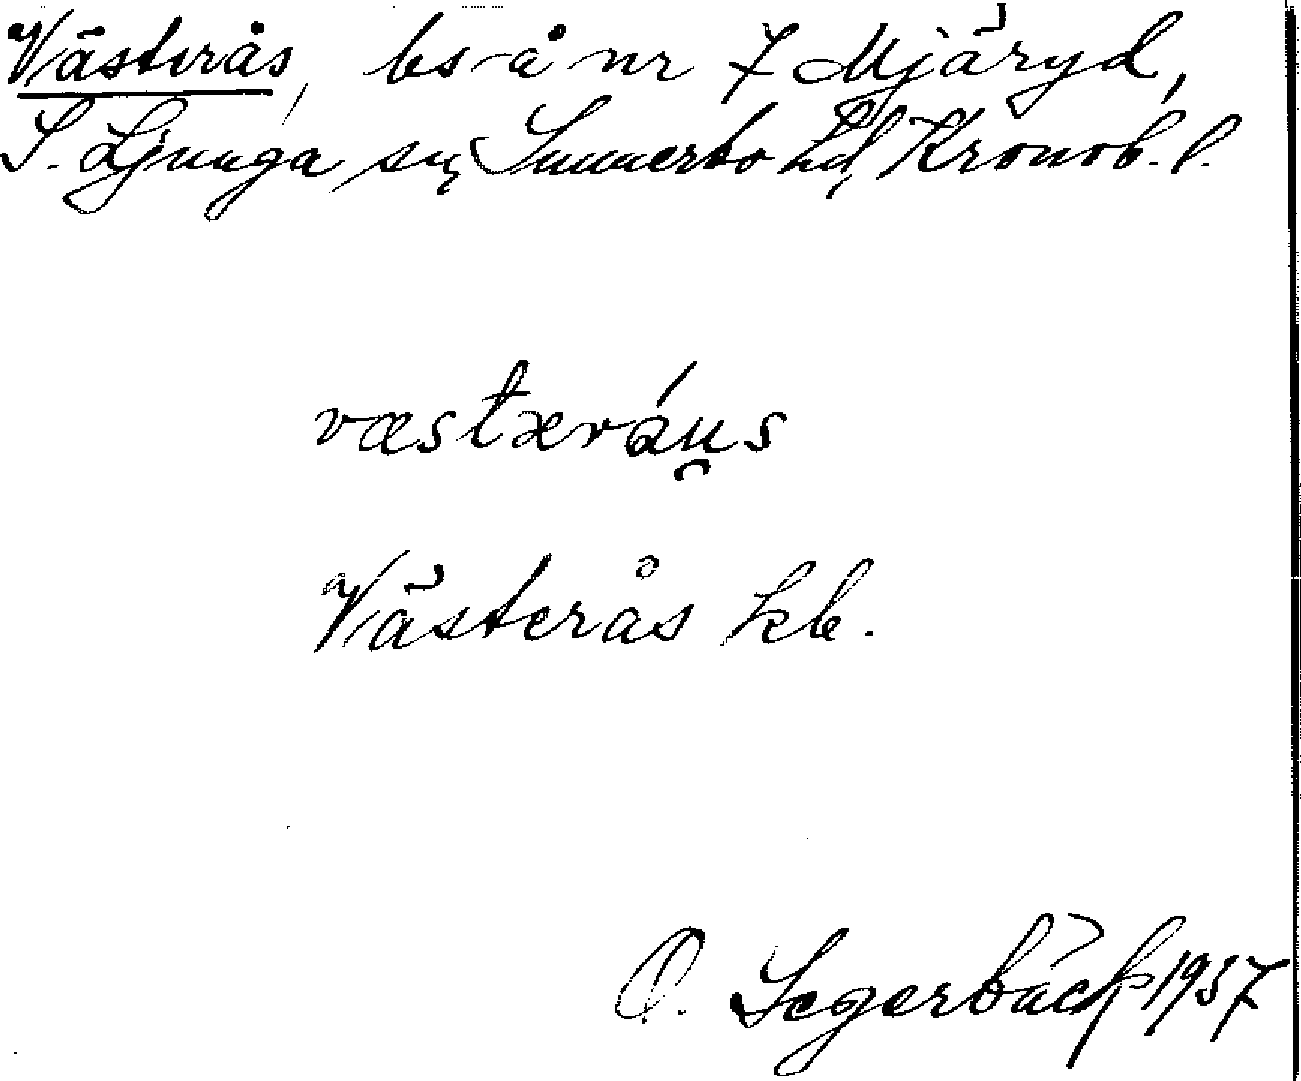 Västerås, bs å nr 7 Mjäryd,
S. Ljunga sn, Sunnerbo hd, Kronob. l.
væstæráu̯s
Västerås kb.
O. Segerbäck 1957